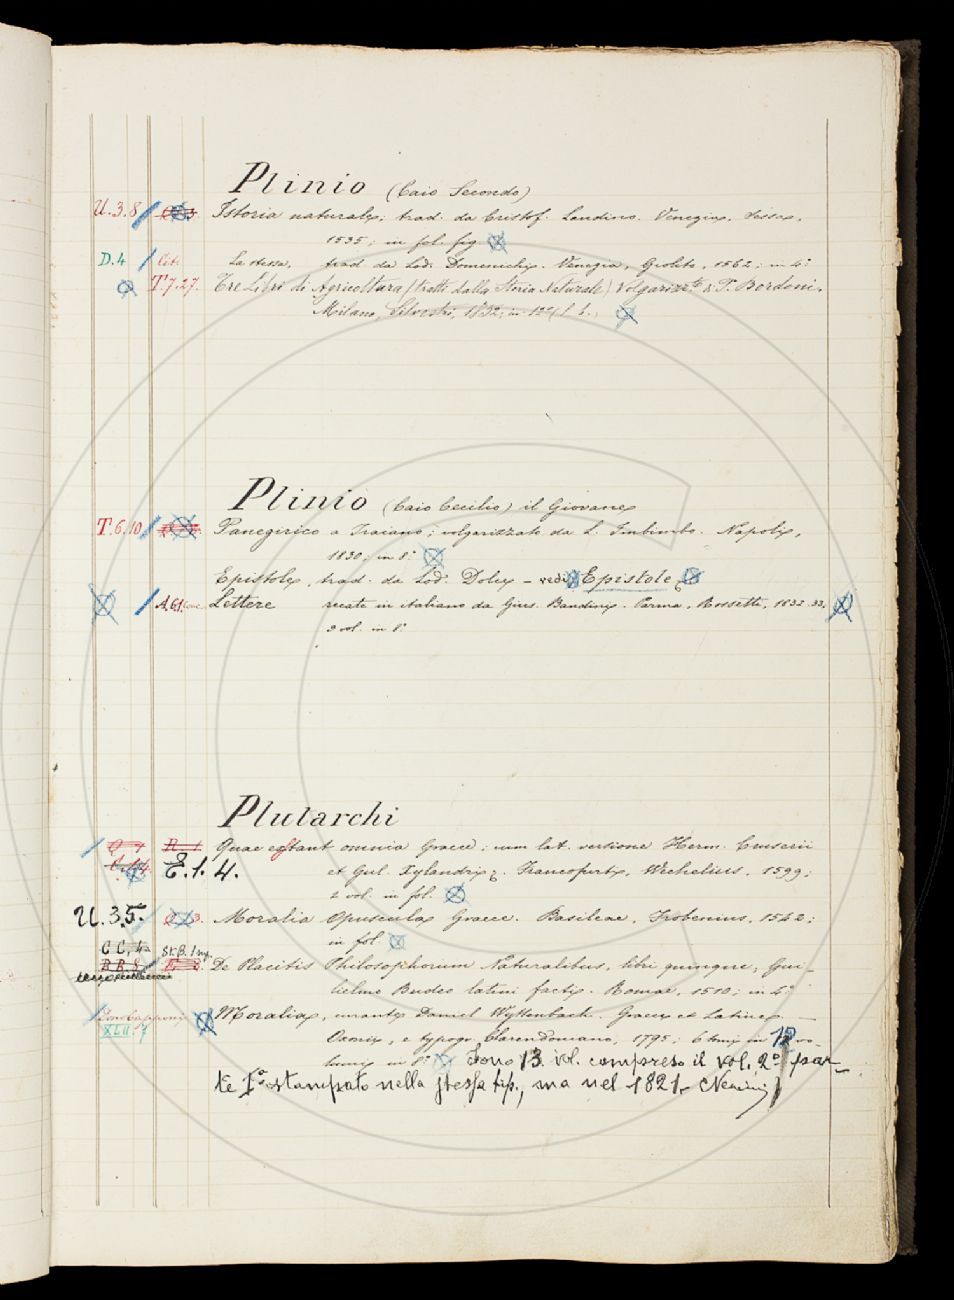 Plinio (Caio Secondo)
U.3.8 Istoria naturale, trad. da Cristof. Landino. Venezia, Sessa,
1535; in fol. fig.
D.4 La stessa, trad. da Lod. Domenichi. Venezia, Giolito, 1562; in 4°
T.7.27. Tre Libri di Agricoltura (tratti dalla Storia Naturale) volgarizz.ti da P. Bordoni.
Milano, Silvestri, 1832; in 12°
Plinio (Caio Cecilio) il Giovane
T.6.10 Panegirico a Traiano; volgarizzato da L. Imbimbo. Napoli,
1830; in 8°
Epistole, trad. da Lod. Dolce – vedi Epistole
A61 Lettere recate in italiano da Gius. Bandini. Parma, Rossetti, 1832-33,
2 vol. in 8°
Plutarchi
Quae exstant omnia Graece; cum lat. versione Herm. Cruserii
E.1.4. et Gul. Xylandri. Francofurti, Wechelius, 1599;
2 vol. in fol.
U.3.5. Moralia Opuscula Graece. Basileae, Frobenius, 1542;
in fol.
De Placitis Philosophorum Naturalibus, libri quinque, Gui-
lielmo Budeo latini facti. Romae, 1510; in 4°
XLII.7 Moralia, curante Daniel Wyttenbach. Graece et Latine
Oxonii, e typogr. Clarendoniano, 1795; 6 tomi in 12 vo-
lumi in 8° Sono 13 vol. compreso il vol. 2° par-
te I° stampato nella stessa tip., ma nel 1821.